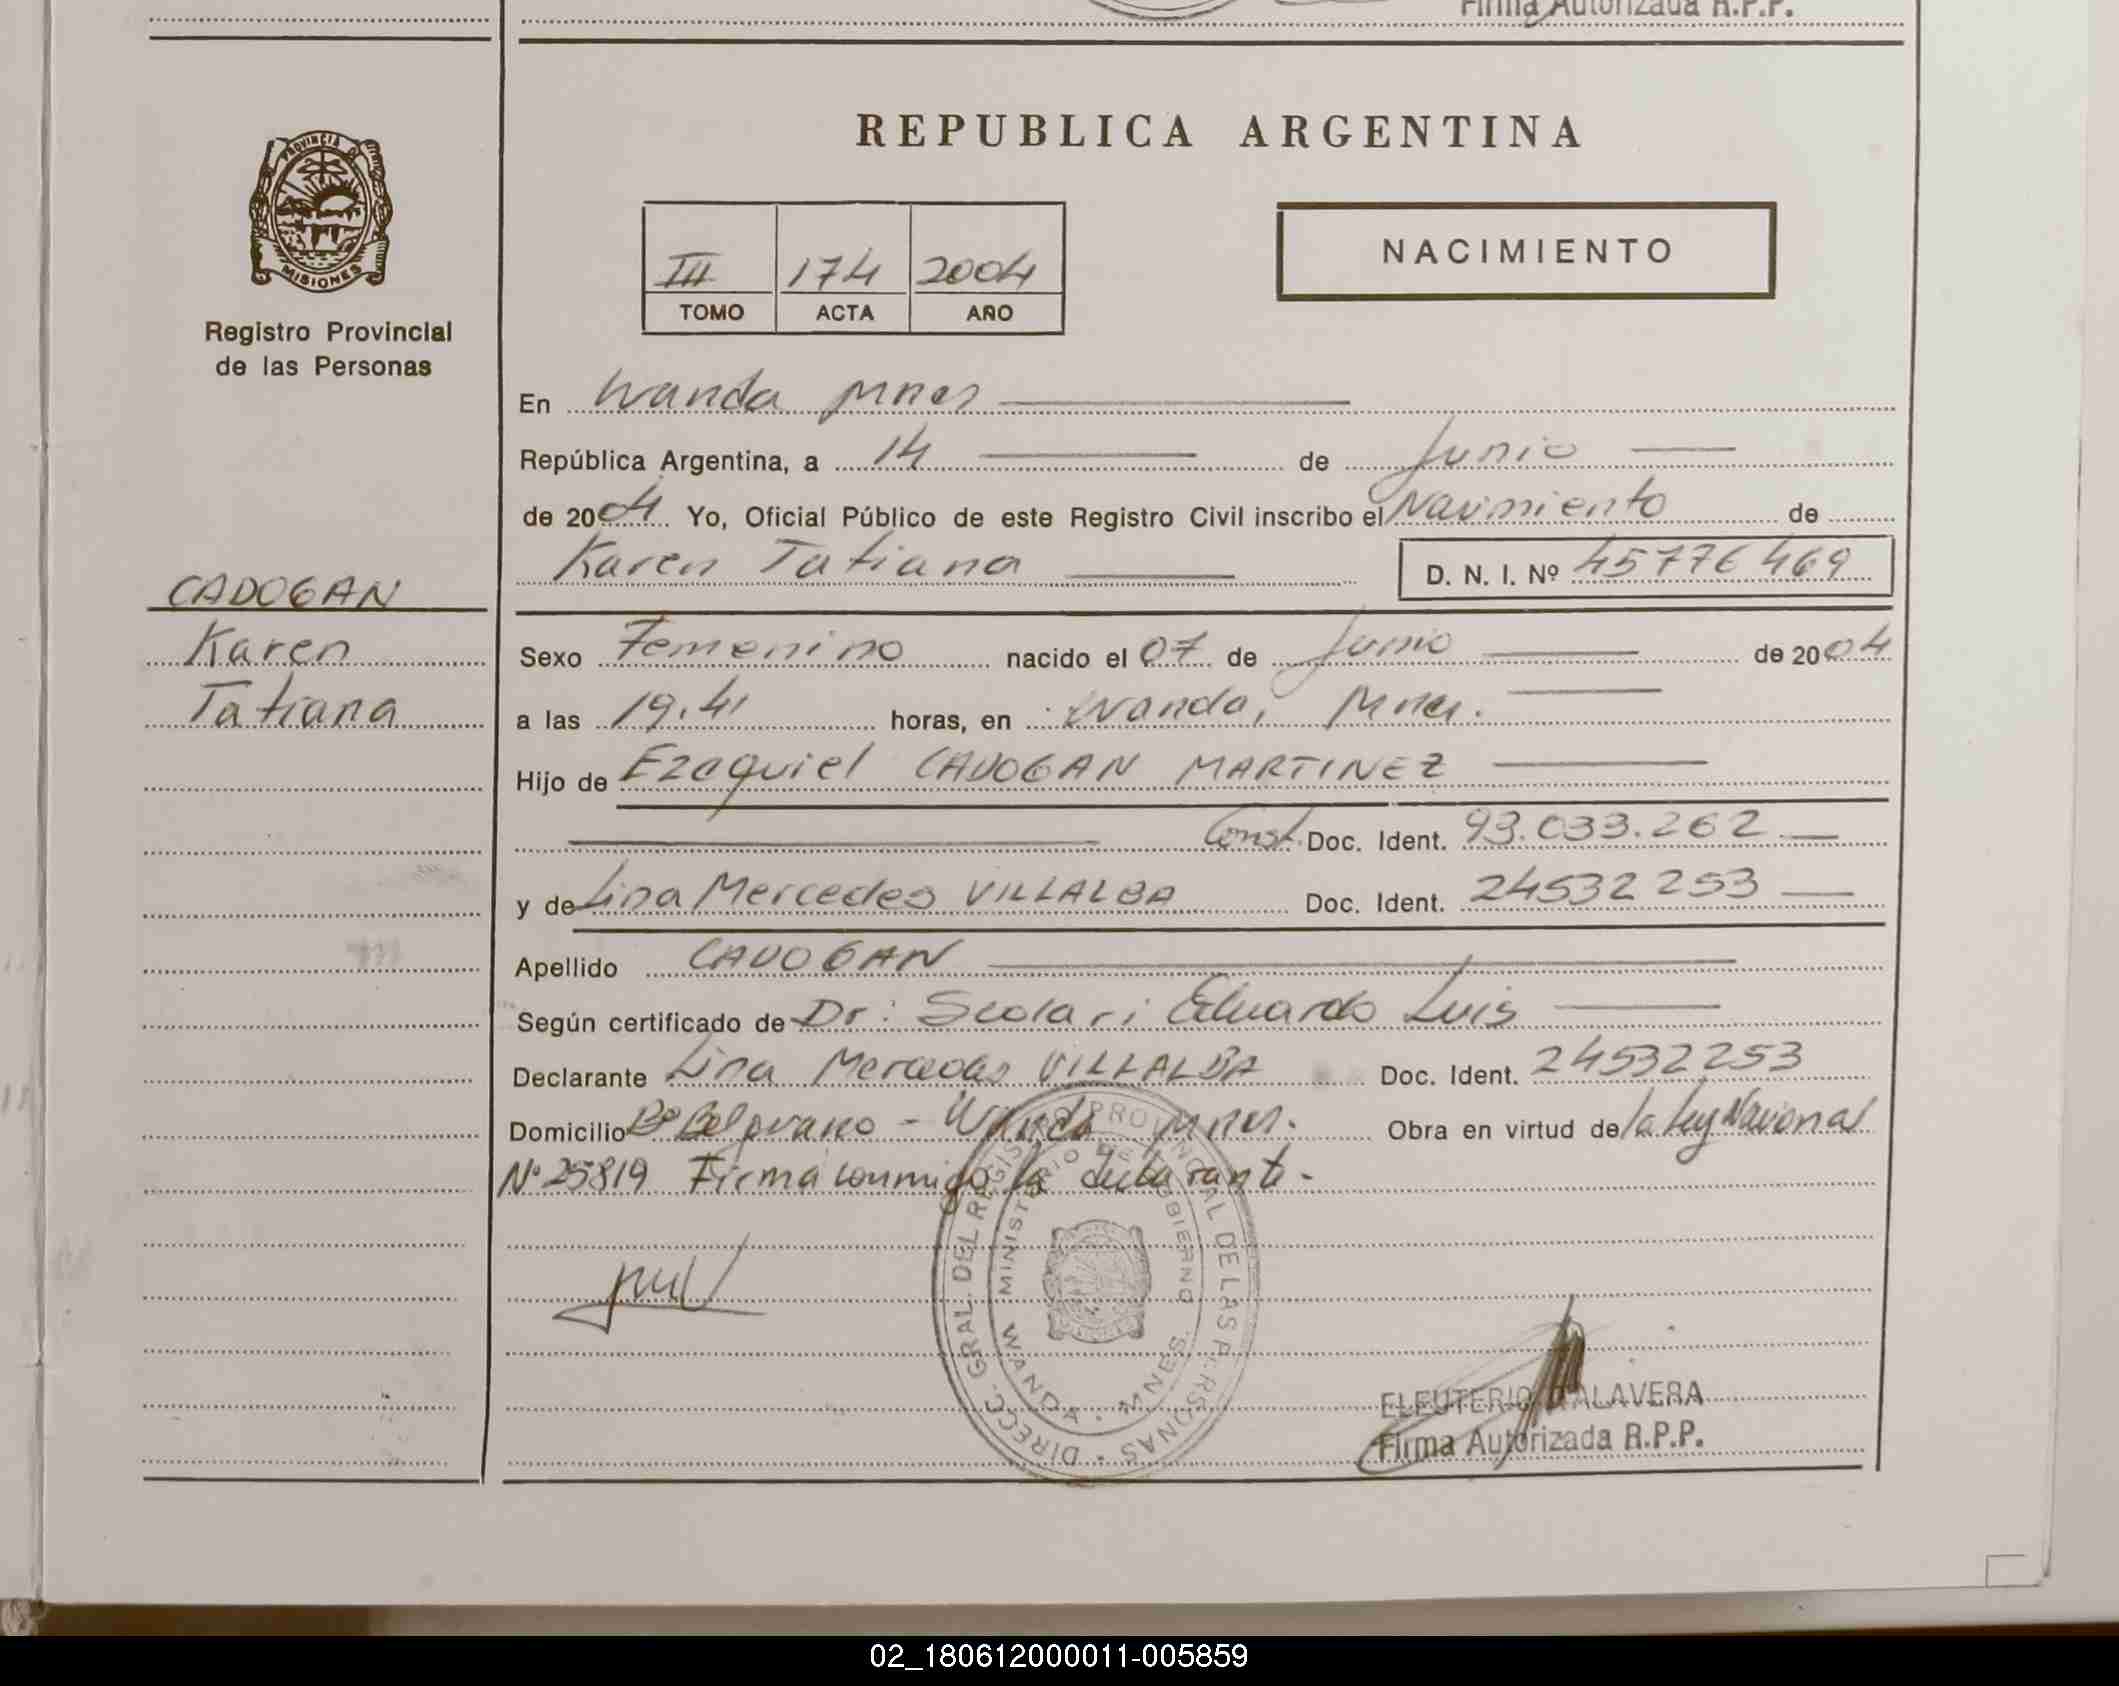 Firma Autorizada R.P.P.
PROVINCIA DE
MISIONES
Registro Provincial
de las Personas
CADOGAN
Karen
Tatiana
REPUBLICA ARGENTINA
III 174 2004
TOMO ACTA AÑO
NACIMIENTO
En Wanda Mnes
República Argentina, a 14 de Junio
de 2004 Yo, Oficial Público de este Registro Civil inscribo el Nacimiento de
Karen Tatiana D. N. I. Nº 45776469
Sexo Femenino nacido el 07 de Junio de 2004
a las 19.41 horas, en Wanda, Mnes.
Hijo de Ezequiel CADOGAN MARTINEZ
Const. Doc. Ident. 93.033.262
y de Lina Mercedes VILLALBA Doc. Ident. 24532253
Apellido CADOGAN
Según certificado de Dr: Scolari Eduardo Luis
Declarante Lina Mercedes VILLALBA Doc. Ident. 24532253
Domicilio Bº Belgrano - Wanda Mnes. Obra en virtud de la ley Nacional
Nº 25819 Firma conmigo la declarante.-
DIRECC. GRAL. DEL REGISTRO PROVINCIAL DE LAS PERSONAS
MINISTERIO DE GOBIERNO
WANDA - MNES.
ELEUTERIO TALAVERA
Firma Autorizada R.P.P.
02_180612000011-005859